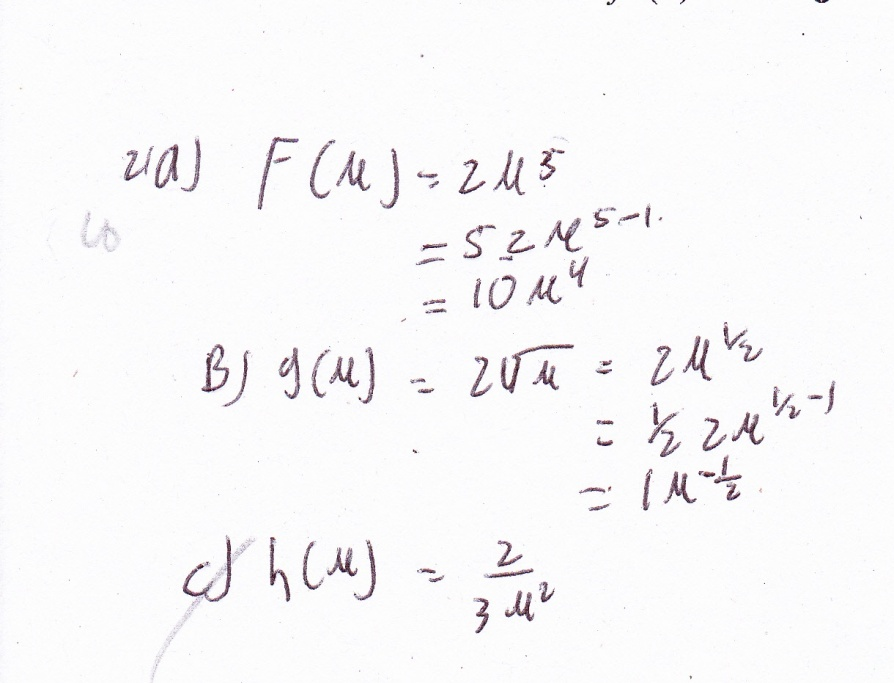 2a) F(x) = 2x^5
= 5 2x^{5-1}
= 10x^4
B) g(x) = 2√x = 2x^{1/2}
= 1/2 2x^{1/2-1}
= 1x^{-1/2}
c) h(x) = 2/(3x^2)